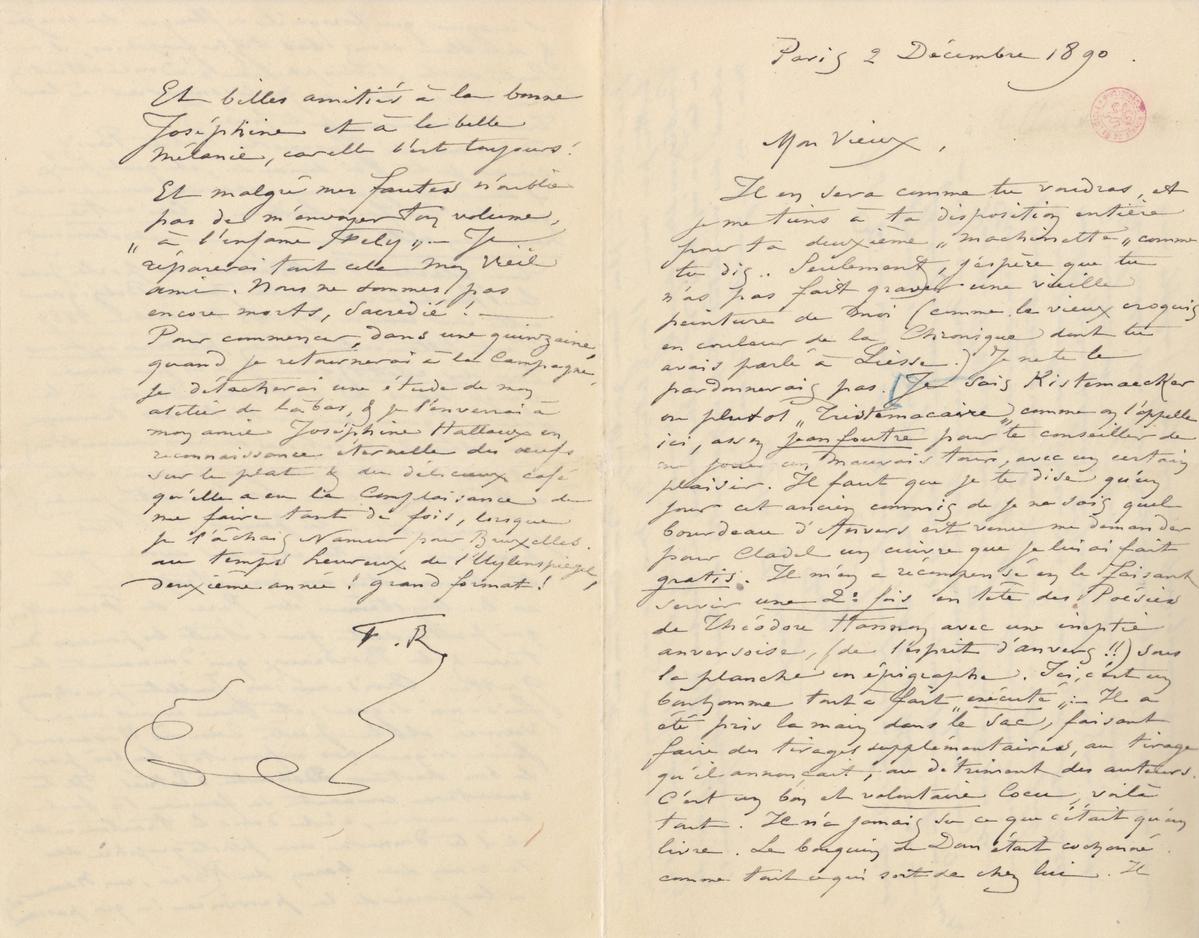 Paris 2 Décembre 1890.
Mon Vieux,
Il en sera comme tu voudras, et
je me tiens à ta disposition entière
pour ta deuxième „machinette„ comme
tu dis.. Seulement, j'espère que tu
n'as pas fait graver une vieille
peinture de moi (comme le vieux croquis
en couleur de la Chronique dont tu
avais parlé à Liesse.) Je ne te le
pardonnerais pas. (Je sais Kistemaecker
ou plutôt „Tristemacaire„) comme on l'appelle
ici, assez jean foutre pour te conseiller de
me jouer un mauvais tour, avec un certain
plaisir. Il faut que je te dise qu'un
jour cet ancien commis de je ne sais quel
bourdeau d'Anvers est venu me demander
pour Cladel un cuivre que je lui ai fait
gratis. Il m'en a recompensé en le faisant
servir une 2e fois en tête des Poésies
de Théodore Hannon avec une ineptie
anversoise, (de l'esprit d'anvers!!) sous
la planche en épigraphe. Ici, c'est un
bonhomme tout à fait „exécuté„.- Il a
été pris la main dans le sac, faisant
faire des tirages supplementaires, au tirage
qu'il annonçait, au détriment des auteurs.
C'est un bon et volontaire cocu, voilà
tout. Il n'a jamais su ce que c'était qu'un
livre. Le bouquin de Dom était cochonné
comme tout ce qui sort de chez lui. Il
Et belles amitiés à la bonne
Joséphine et à la belle
Mélanie, car elle l'est toujours!
Et malgré mes fautes n'oublie
pas de m'envoyer ton volume,
„à l'infâme Fély„ – Je
réparerai tout cela mon vieil
ami. Nous ne sommes pas
encore morts, Sacredié! –
Pour commencer, dans une quinzaine,
quand je retournerai à la Campagne,
je détacherai une étude de mon
atelier de là bas, & je l'enverrai à
mon amie Joséphine Hallaux en
reconnaissance éternelle des œufs
sur le plat & du délicieux café
qu'elle a eu la Complaisance de
me faire tant de fois, lorsque
je lâchais Namur pour Bruxelles.
au temps heureux de l'Uylenspiegel,
deuxième année! grand format!
F. R